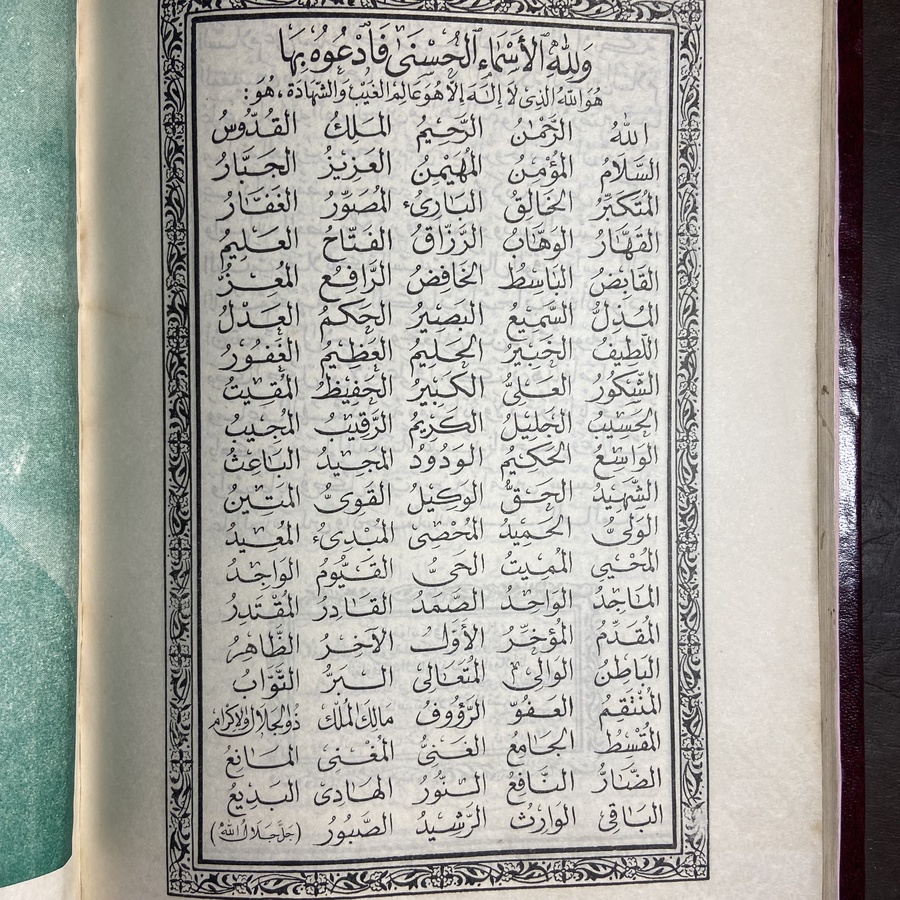 وَلِلّٰهِ الأَسْمَاءُ الحُسْنَىٰ فَادْعُوهُ بِهَا
هُوَ اللّٰهُ الَّذِى لَا إِلٰهَ إِلَّا هُوَ عَالِمُ الغَيْبِ وَالشَّهَادَةِ، هُوَ:
اللّٰهُ الرَّحْمٰنُ الرَّحِيْمُ المَلِكُ القُدُّوسُ
السَّلَامُ المُؤْمِنُ المُهَيْمِنُ العَزِيزُ الجَبَّارُ
المُتَكَبِّرُ الخَالِقُ البَارِئُ المُصَوِّرُ الغَفَّارُ
القَهَّارُ الوَهَّابُ الرَّزَّاقُ الفَتَّاحُ العَلِيمُ
القَابِضُ البَاسِطُ الخَافِضُ الرَّافِعُ المُعِزُّ
المُذِلُّ السَّمِيعُ البَصِيْرُ الحَكَمُ العَدْلُ
اللَّطِيفُ الخَبِيْرُ الحَلِيمُ العَظِيْمُ الغَفُورُ
الشَّكُورُ العَلِىُّ الكَبِيْرُ الحَفِيظُ المُقِيتُ
الحَسِيبُ الجَلِيْلُ الكَرِيْمُ الرَّقِيْبُ المُجِيبُ
الوَاسِعُ الحَكِيْمُ الوَدُودُ المَجِيدُ البَاعِثُ
الشَّهِيْدُ الحَقُّ الوَكِيلُ القَوِىُّ المَتِيْنُ
الوَلِىُّ الحَمِيدُ المُحْصِى المُبْدِئُ المُعِيدُ
المُحْيِى المُمِيتُ الحَىُّ القَيُّومُ الوَاجِدُ
المَاجِدُ الوَاحِدُ الصَّمَدُ القَادِرُ المُقْتَدِرُ
المُقَدِّمُ المُؤَخِّرُ الأَوَّلُ الآخِرُ الظَّاهِرُ
البَاطِنُ الوَالِى المُتَعَالِى البَرُّ التَّوَّابُ
المُنْتَقِمُ العَفُوُّ الرَّؤُوفُ مَالِكُ المُلْكِ ذُو الجَلَالِ وَالإِكْرَامِ
المُقْسِطُ الجَامِعُ الغَنِىُّ المُغْنِى المَانِعُ
الضَّارُّ النَّافِعُ النُّورُ الهَادِى البَدِيعُ
البَاقِى الوَارِثُ الرَّشِيدُ الصَّبُورُ (جَلَّ جَلَالُ اللّٰهِ)